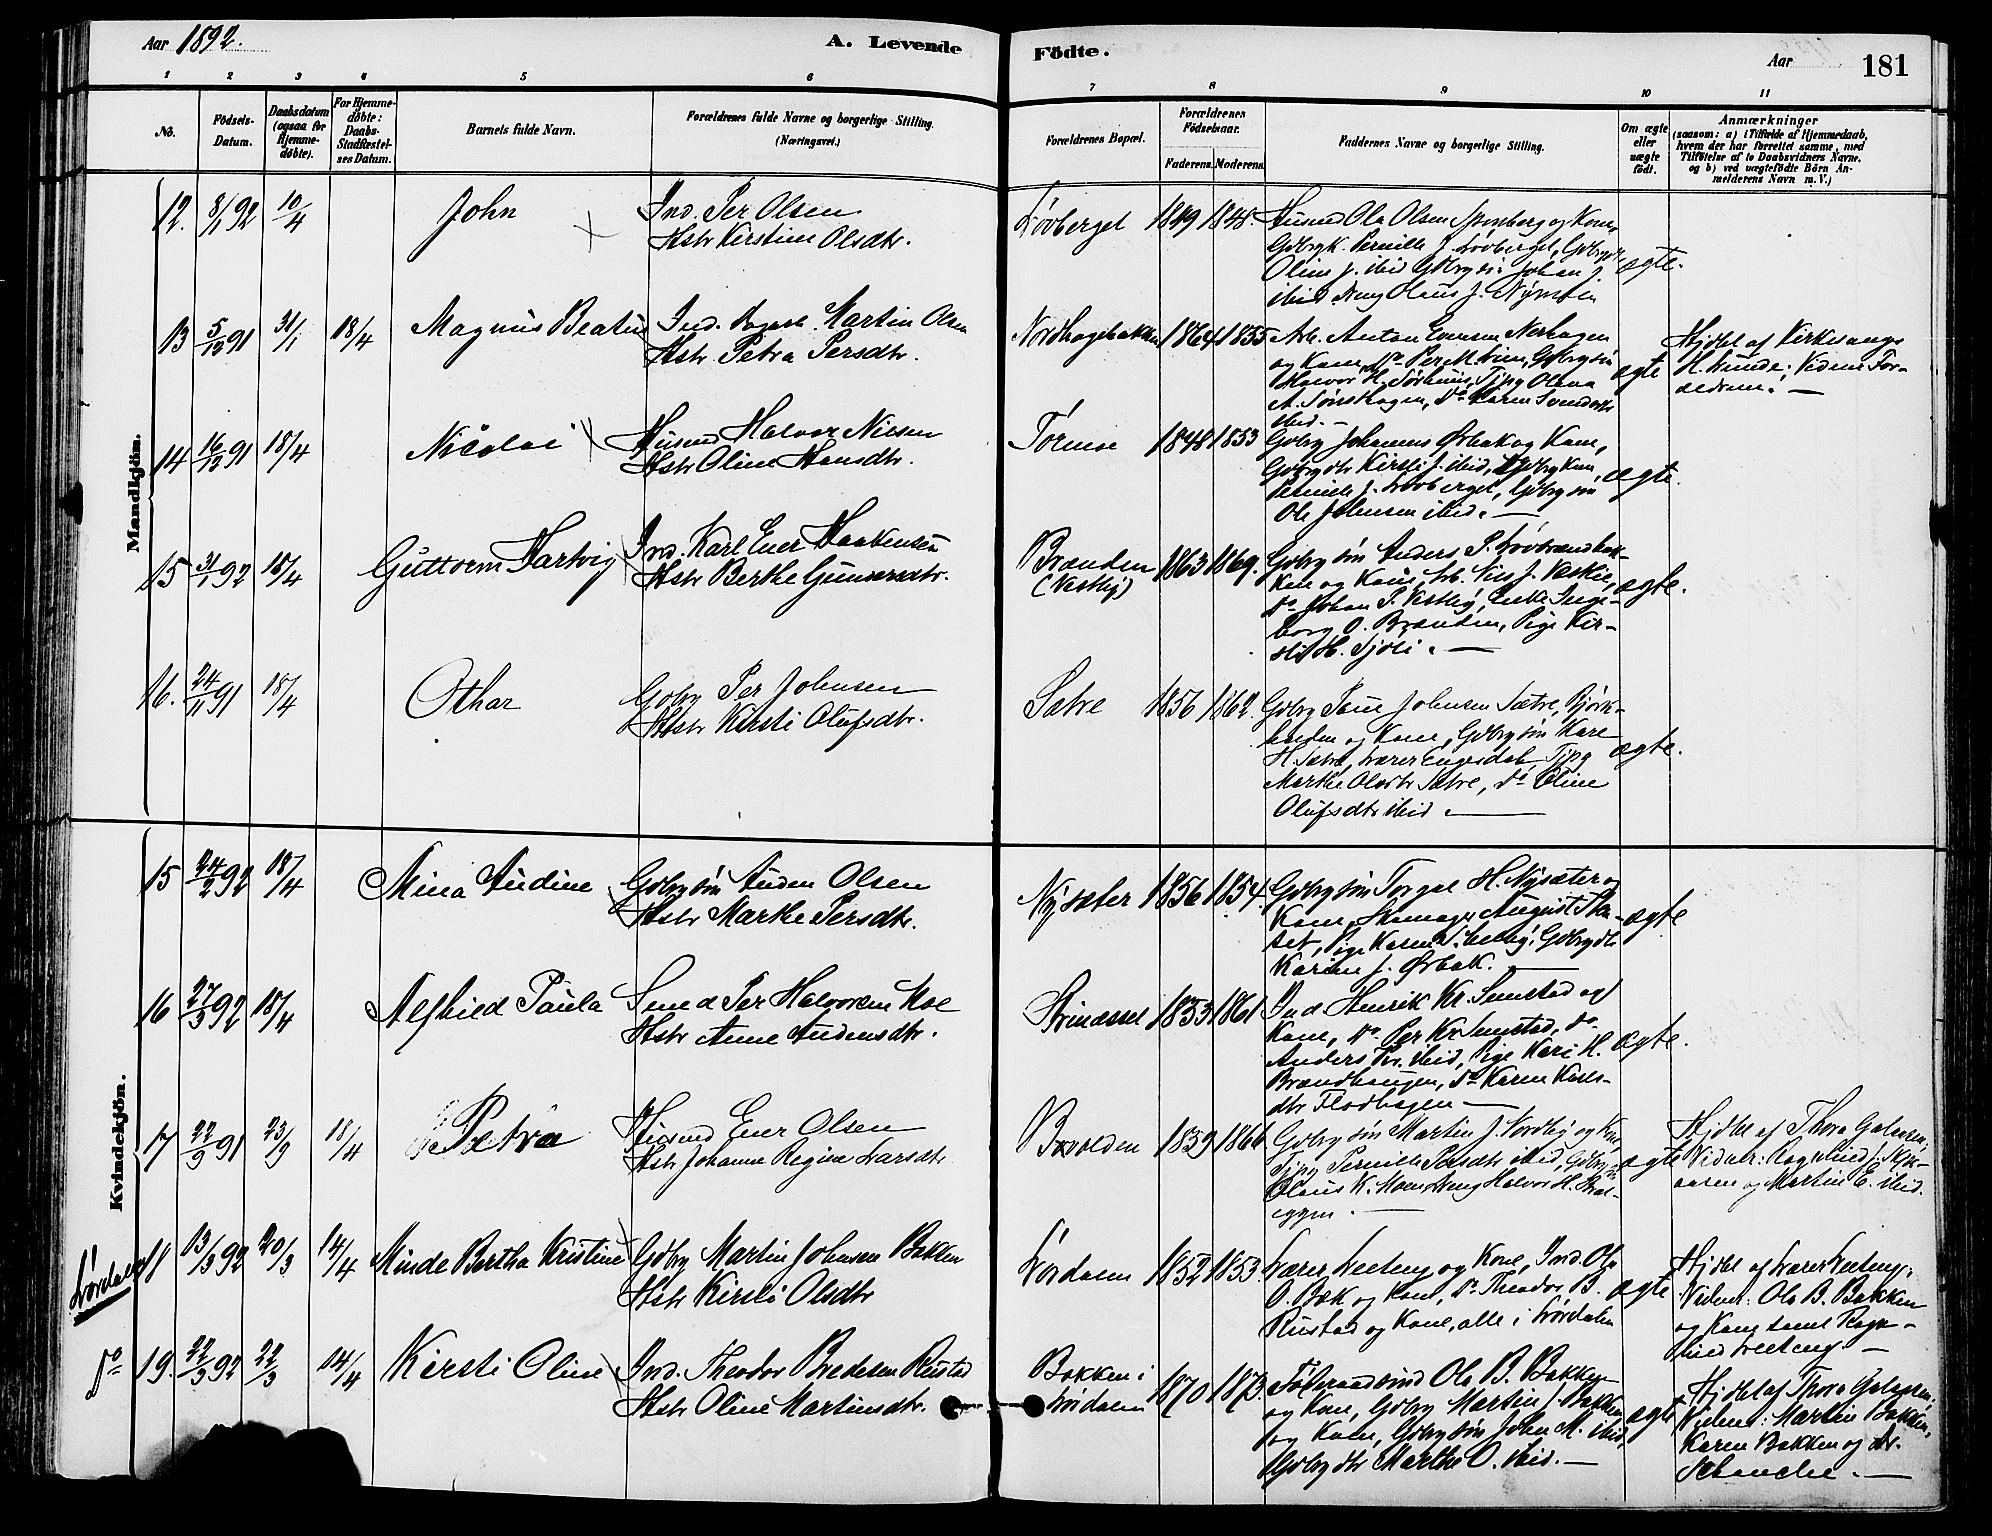 Aar 1892.
A. Levende
Födte.
Aar
181
1 2 3 4 5 6 7 8 9 10 11
No.
Födsels-
Datum.
Daabsdatum
(ogsaa for
Hjemme-
døbte).
For Hjemme-
døbte:
Daabs-
Stadfæstel-
ses Datum.
Barnets fulde Navn.
Forældrenes fulde Navne og borgerlige Stilling.
(Næringsvei.)
Forældrenes Bopæl.
Forældrenes
Födselsaar.
Faderens. Moderens.
Faddernes Navne og borgerlige Stilling.
Om ægte
eller
uægte
født.
Anmærkninger
(saasom: a) i Tilfælde af Hjemmedaab,
hvem der har forrettet samme, med
Tilföielse af to Daabsvidners Navne.
og b) ved uægtefödte Börn An-
melderens Navn m.V.)
Mandkjön.
12. 8/1 92 10/4 John
Ind. Per Olsen
Hstr Kerstine Olsdtr.
Lövberget 1849 1848.
Husmd Ola Olsen Spönberg og Kone,
Gdbryk. Pernille J. Lovberget, Gdbrydtr
Oline J. ibid Gdbrysön Johan J.
ibid. Ung Olaus J.
ægte.
13 5/12 91 31/1 18/4 Magnus Beatus
Ind. Martin Olsen
Hstr. Petra Persdtr.
Nordhagebakken 1864 1855
Arb. Anton Evensen Norhagen
og Kone, Do Per M. Lien, Gdbrysön
Halvor H. Tjpg Olava
A. Do Karen
ibid.
ægte
Hjdbt af Kirkesanger
H. Lunde. Vidne For-
ældrene.
14 16/12 91 18/4 Nicolai
Husmd Halvor Nilsen
Hstr Oline Hansdtr.
1848 1853
Gdbr Johannes Ørbak og Kone,
Gdbrydtr Kirsti J. ibid, Gdbrykone
Pernille J. Lovberget, Gdbrysön
Ole Johnsen ibid.
ægte.
15 31/1 92 18/4 Guttorm Hartvig
Ind. Karl Ener Haakensen
Hstr Berthe Gunersdtr.
Brænden
(Vestby) 1863 1869.
Gdbrysön Anders P. Lövbrændbak-
ken og Kone, Arb. Nils J.
Do Johan P. Vestby, Enke Inge-
borg O. Brænden, Pige Kir-
sti H. Sjöli.
ægte.
16. 24/11 91 18/4 Othar
Gdbr Per Johnsen
Hstr Kirsti Olufsdtr.
Sætre 1856 1862.
Gdbr Paul Johnsen Sætre, Björk-
og Kone, Gdbrysön Kare
H. Sætre, Lærer Engerdal Tjpg
Marthe Olsdtr Sætre, Do Oline
Olufsdtr ibid.
ægte.
Kvindekjön.
15 24/2 92 18/4 Mina Audine
Gdbrysön Auden Olsen
Hstr Marthe Persdtr.
Nysæter 1856 1854.
Gdbrysön Torgal H. Nysæter og
Kone, Skomager August
Pige Karen Gdbrydtr
Karen J. Ørbak.
ægte
16 27/3 92 18/4 Alfhild Paula
Smed Per Halvorsen Moe
Hstr Anne Audensdtr.
1853 1861
Ind Henrik Kr. Semstad og
Kone, Do Per Kr Semstad, Do
Anders Per. ibid, Pige Kari H.
Brændhaugen, Do Karen Karls-
dtr Flodhagen
ægte.
17 22/9 91 23/9 18/4 Petra
Husmd Ener Olsen
Hstr Johanne Regine Larsdtr
1839 1866
Gdbrysön Martin J. Nordby og Kone
Tjpg Pernille Persdtr ibid, Gdbrysön
Olaus K. Moen, Ung Halvor H.
ægte
Hjdbt af Thora Galaasen.
Vidner: Ragnhild J.
og Martin E. ibid.
Lördalen
18 13/3 92 20/3 14/4 Minde Bertha Kristine
Gdbr Martin Johnsen Bakken
Hstr Kirsti Olsdtr
Lördalen 1852 1853.
Lærer Leeteng og Kone, Ind. Ole
O. Bæk og Kone, Do Theodor B.
Rustad og Kone, alle i Lördalen
ægte
Hjdbt af Lærer Leeteng;
Vidner: Ola B. Bakken
og Kone samt Ragn-
hild Leeteng
Do 19. 22/3 92 22/3 14/4 Kirsti Oline
Ind. Theodor Bredesen Rustad
Hstr Oline Martinsdtr.
Bakken i
Lördalen 1870 1873.
Föderaadsmd Ole B. Bakken
og Kone, Gdbr Martin J. Bakken
og Kone, Gdbrysön John M. ibid,
Gdbrydtr Marthe O. ibid.
ægte
Hjdbt af Thora Galaasen.
Vidner: Martin Bakken,
Karen Bakken og Dr.
Schanche.